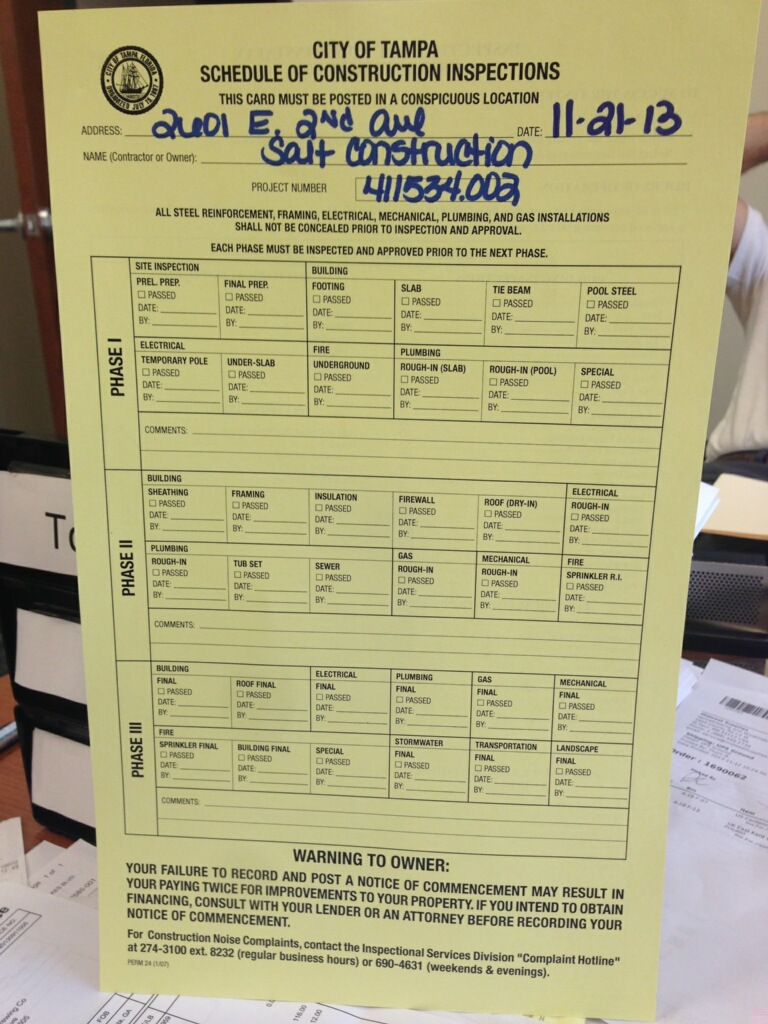 CITY OF TAMPA
SCHEDULE OF CONSTRUCTION INSPECTIONS
THIS CARD MUST BE POSTED IN A CONSPICUOUS LOCATION
ADDRESS: 2601 E. 2nd Ave DATE: 11-21-13
NAME (Contractor or Owner): Salt Construction
PROJECT NUMBER 411534.002
ALL STEEL REINFORCEMENT, FRAMING, ELECTRICAL, MECHANICAL, PLUMBING, AND GAS INSTALLATIONS
SHALL NOT BE CONCEALED PRIOR TO INSPECTION AND APPROVAL.
EACH PHASE MUST BE INSPECTED AND APPROVED PRIOR TO THE NEXT PHASE.
PHASE I
SITE INSPECTION BUILDING
PREL. PREP. FINAL PREP. FOOTING SLAB TIE BEAM POOL STEEL
☐ PASSED ☐ PASSED ☐ PASSED ☐ PASSED ☐ PASSED ☐ PASSED
DATE: DATE: DATE: DATE: DATE: DATE:
BY: BY: BY: BY: BY: BY:
ELECTRICAL FIRE PLUMBING
TEMPORARY POLE UNDER-SLAB UNDERGROUND ROUGH-IN (SLAB) ROUGH-IN (POOL) SPECIAL
☐ PASSED ☐ PASSED ☐ PASSED ☐ PASSED ☐ PASSED ☐ PASSED
DATE: DATE: DATE: DATE: DATE: DATE:
BY: BY: BY: BY: BY: BY:
COMMENTS:
PHASE II
BUILDING ELECTRICAL
SHEATHING FRAMING INSULATION FIREWALL ROOF (DRY-IN) ROUGH-IN
☐ PASSED ☐ PASSED ☐ PASSED ☐ PASSED ☐ PASSED ☐ PASSED
DATE: DATE: DATE: DATE: DATE: DATE:
BY: BY: BY: BY: BY: BY:
PLUMBING GAS MECHANICAL FIRE
ROUGH-IN TUB SET SEWER ROUGH-IN ROUGH-IN SPRINKLER R.I.
☐ PASSED ☐ PASSED ☐ PASSED ☐ PASSED ☐ PASSED ☐ PASSED
DATE: DATE: DATE: DATE: DATE: DATE:
BY: BY: BY: BY: BY: BY:
COMMENTS:
PHASE III
BUILDING ELECTRICAL PLUMBING GAS MECHANICAL
FINAL ROOF FINAL FINAL FINAL FINAL FINAL
☐ PASSED ☐ PASSED ☐ PASSED ☐ PASSED ☐ PASSED ☐ PASSED
DATE: DATE: DATE: DATE: DATE: DATE:
BY: BY: BY: BY: BY: BY:
FIRE STORMWATER TRANSPORTATION LANDSCAPE
SPRINKLER FINAL BUILDING FINAL SPECIAL FINAL FINAL FINAL
☐ PASSED ☐ PASSED ☐ PASSED ☐ PASSED ☐ PASSED ☐ PASSED
DATE: DATE: DATE: DATE: DATE: DATE:
BY: BY: BY: BY: BY: BY:
COMMENTS:
WARNING TO OWNER:
YOUR FAILURE TO RECORD AND POST A NOTICE OF COMMENCEMENT MAY RESULT IN
YOUR PAYING TWICE FOR IMPROVEMENTS TO YOUR PROPERTY. IF YOU INTEND TO OBTAIN
FINANCING, CONSULT WITH YOUR LENDER OR AN ATTORNEY BEFORE RECORDING YOUR
NOTICE OF COMMENCEMENT.
For Construction Noise Complaints, contact the Inspectional Services Division "Complaint Hotline"
at 274-3100 ext. 8232 (regular business hours) or 690-4631 (weekends & evenings).
PERM 24 (1/07)